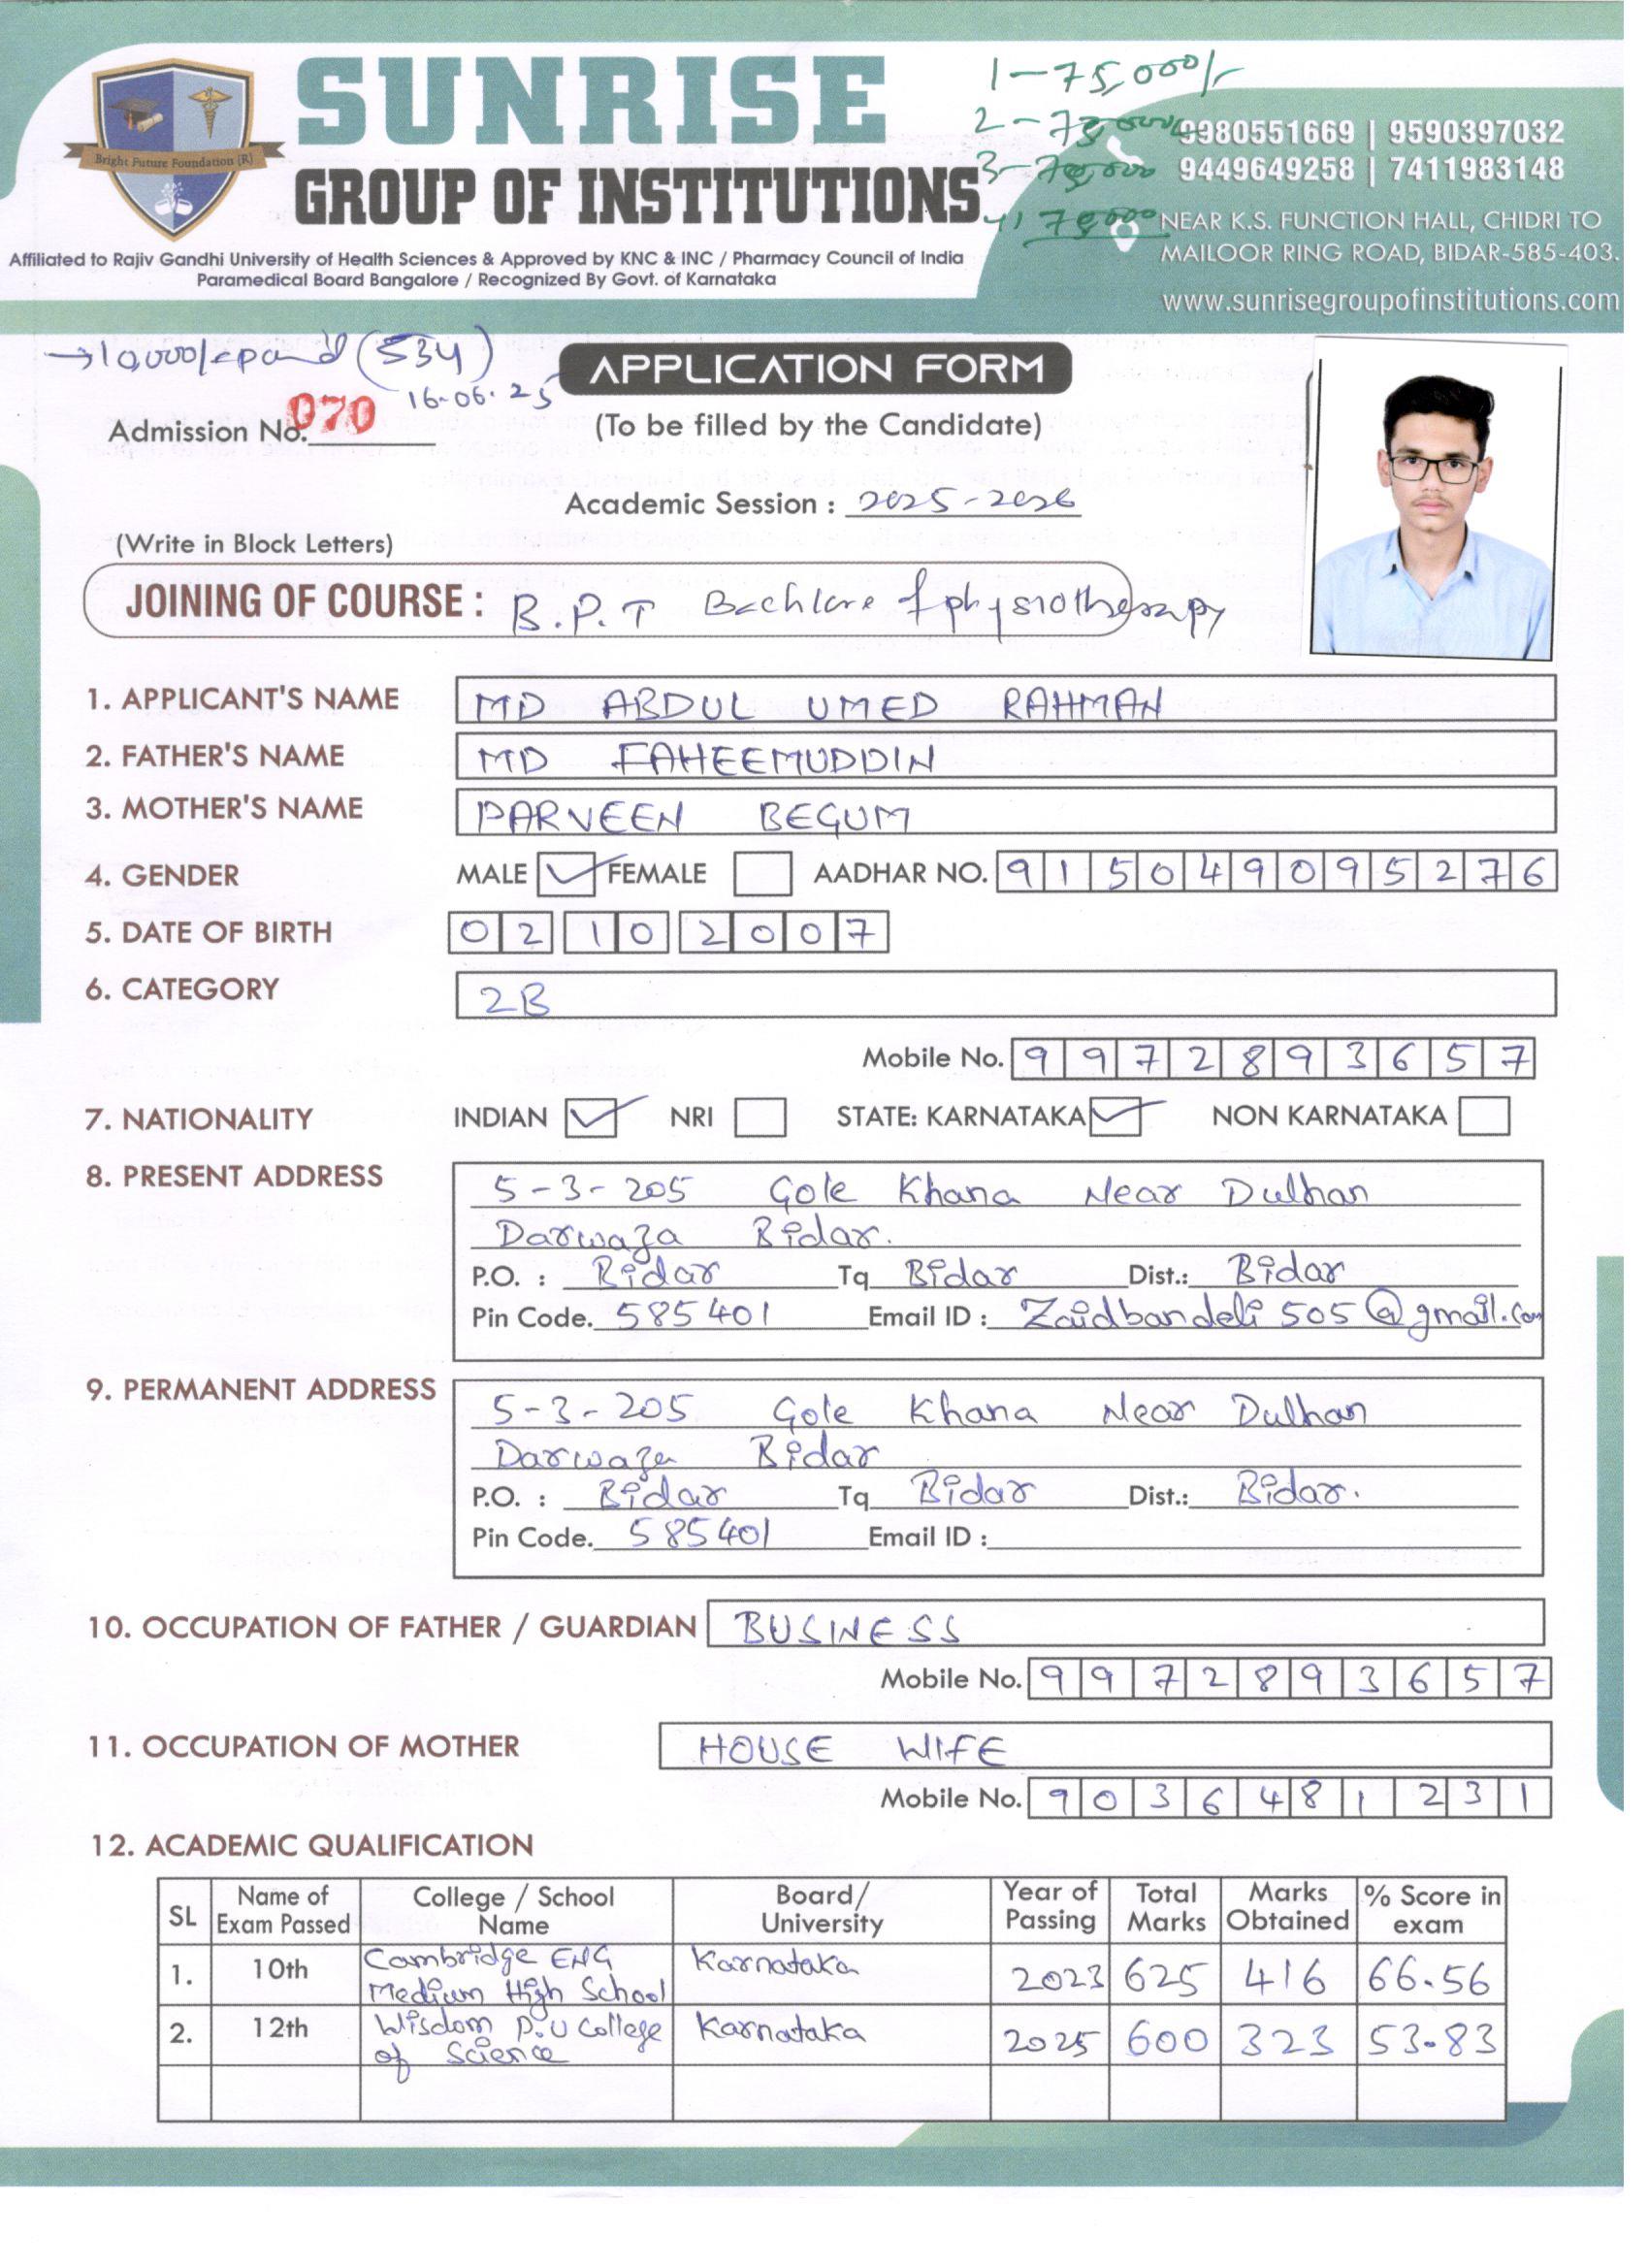 SUNRISE
GROUP OF INSTITUTIONS
Bright Future Foundation (R)
Affiliated to Rajiv Gandhi University of Health Sciences & Approved by KNC & INC / Pharmacy Council of India
Paramedical Board Bangalore / Recognized By Govt. of Karnataka
1-75,000/-
2-75,000/-
3-75,000
4) 75,000
9980551669 | 9590397032
9449649258 | 7411983148
NEAR K.S. FUNCTION HALL, CHIDRI TO
MAILOOR RING ROAD, BIDAR-585-403.
www.sunrisegroupofinstitutions.com
→10,000/- paid (534)
16-06-25
APPLICATION FORM
Admission No. 070
(To be filled by the Candidate)
Academic Session : 2025-2026
(Write in Block Letters)
JOINING OF COURSE : B.P.T Bachlore of physiotherapy
1. APPLICANT'S NAME MD ABDUL UMED RAHMAN
2. FATHER'S NAME MD FAHEEMUDDIN
3. MOTHER'S NAME PARVEEN BEGUM
4. GENDER MALE ✓ FEMALE AADHAR NO. 915049095276
5. DATE OF BIRTH 02 10 2007
6. CATEGORY 2B
Mobile No. 9972893657
7. NATIONALITY INDIAN ✓ NRI STATE: KARNATAKA ✓ NON KARNATAKA
8. PRESENT ADDRESS 5-3-205 Gole Khana Near Dulhan
Darwaza Bidar.
P.O. : Bidar Tq Bidar Dist.: Bidar
Pin Code. 585401 Email ID : Zaidbandeli505@gmail.com
9. PERMANENT ADDRESS 5-3-205 Gole Khana Near Dulhan
Darwaza Bidar
P.O. : Bidar Tq Bidar Dist.: Bidar.
Pin Code. 585401 Email ID :
10. OCCUPATION OF FATHER / GUARDIAN BUSINESS
Mobile No. 9972893657
11. OCCUPATION OF MOTHER HOUSE WIFE
Mobile No. 9036481231
12. ACADEMIC QUALIFICATION
SL Name of Exam Passed College / School Name Board/ University Year of Passing Total Marks Marks Obtained % Score in exam
1. 10th Cambridge ENG Medium High School Karnataka 2023 625 416 66.56
2. 12th Wisdom P.U College of Science Karnataka 2025 600 323 53.83